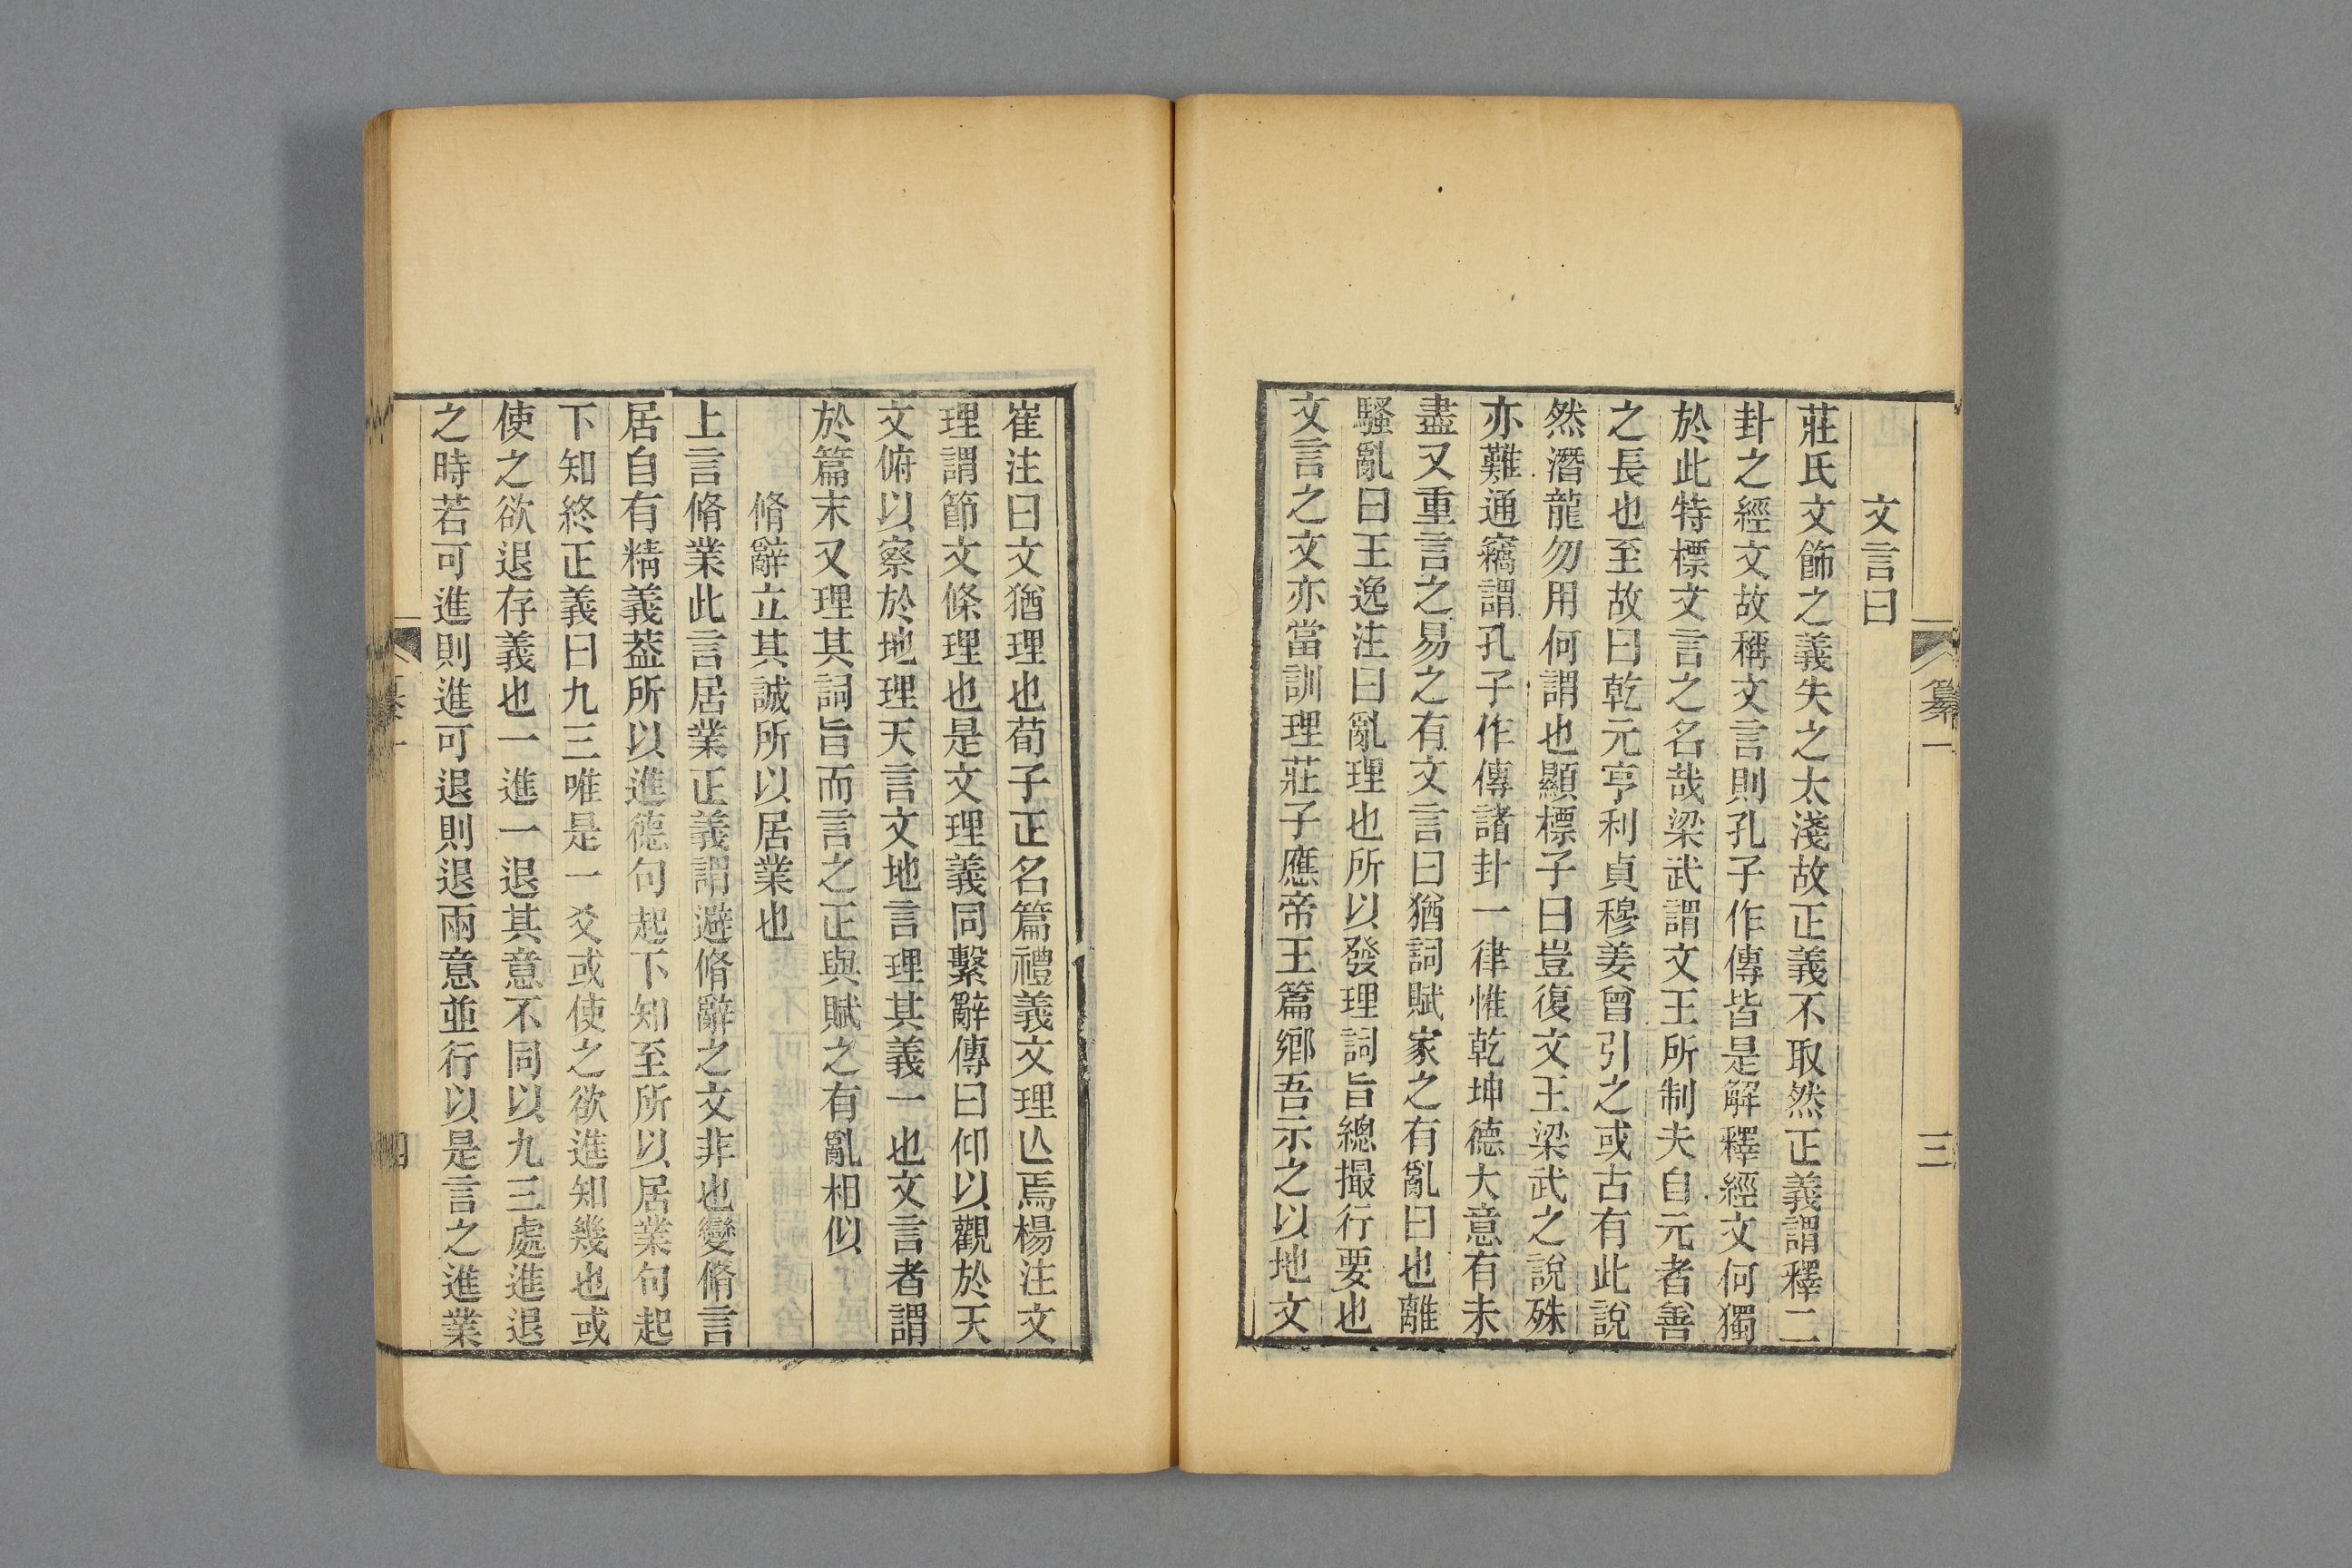 纂一
三
文言曰
莊氏文飾之義失之太淺故正義不取然正義謂釋二
卦之經文故稱文言則孔子作傳皆是解釋經文何獨
於此特標文言之名哉梁武謂文王所制夫自元者善
之長也至故曰乾元亨利貞穆姜曾引之或古有此說
然潛龍勿用何謂也顯標子曰豈復文王梁武之說殊
亦難通竊謂孔子作傳諸卦一律惟乾坤德大意有未
盡又重言之易之有文言曰猶詞賦家之有亂曰也離
騷亂曰王逸注曰亂理也所以發理詞旨總撮行要也
文言之文亦當訓理莊子應帝王篇鄉吾示之以地文
崔注曰文猶理也荀子正名篇禮義文理亾焉楊注文
理謂節文條理也是文理義同繫辭傳曰仰以觀於天
文俯以察於地理天言文地言理其義一也文言者謂
於篇末又理其詞旨而言之正與賦之有亂相似
脩辭立其誠所以居業也
上言脩業此言居業正義謂避脩辭之文非也變脩言
居自有精義葢所以進德句起下知至所以居業句起
下知終正義曰九三唯是一爻或使之欲進知幾也或
使之欲退存義也一進一退其意不同以九三處進退
之時若可進則進可退則退兩意並行以是言之進業
四